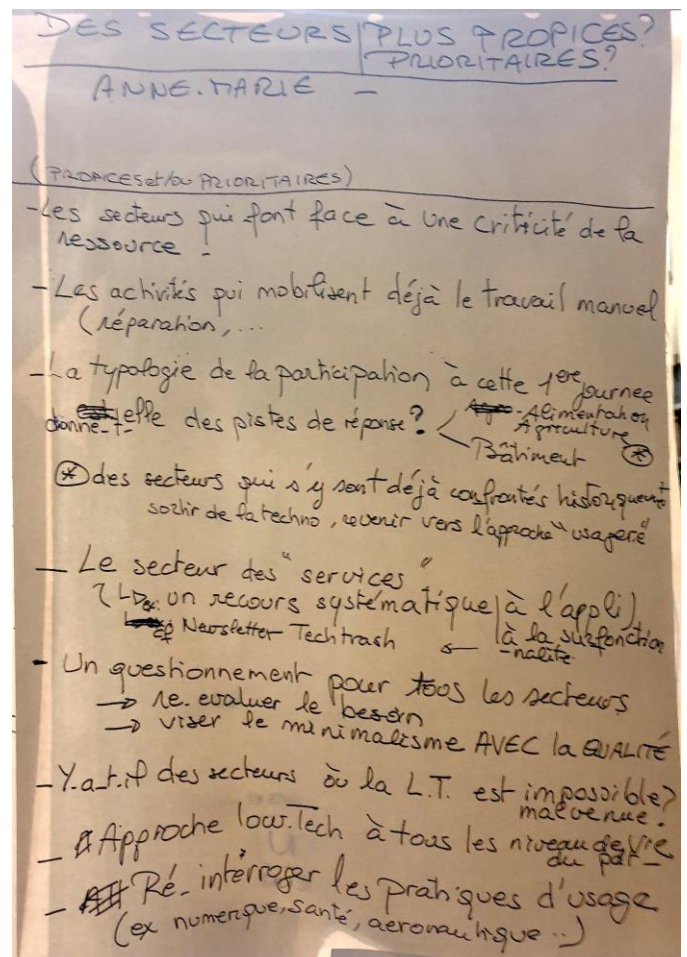 DES SECTEURS PLUS PROPICES?
PRIORITAIRES?
ANNE.MARIE -
(PROPICES et/ou PRIORITAIRES)
- Les secteurs qui font face à une criticité de la
ressource -
- Les activités qui mobilisent déjà le travail manuel
(réparation, ...
- La typologie de la participation à cette 1ere journee
donne-t-elle des pistes de réponse? - Alimentation
Agriculture
Bâtiment *
* des secteurs qui s'y sont déjà confrontés historiquement
sortir de la techno, revenir vers l'approche "usagère"
- Le secteur des "services"
(↳ ex: un recours systématique à l'appli)
à la surfonction
cf Newsletter Techtrash ← -nalité
- Un questionnement pour tous les secteurs
→ re.evaluer le besoin
→ viser le minimalisme AVEC la QUALITÉ
- Y.a_t.il des secteurs où la L.T. est impossible?
malvenue?
- Approche low.Tech à tous les niveau de vie
du
- Ré_interroger les pratiques d'usage
(ex numerique, santé, aeronautique ..)